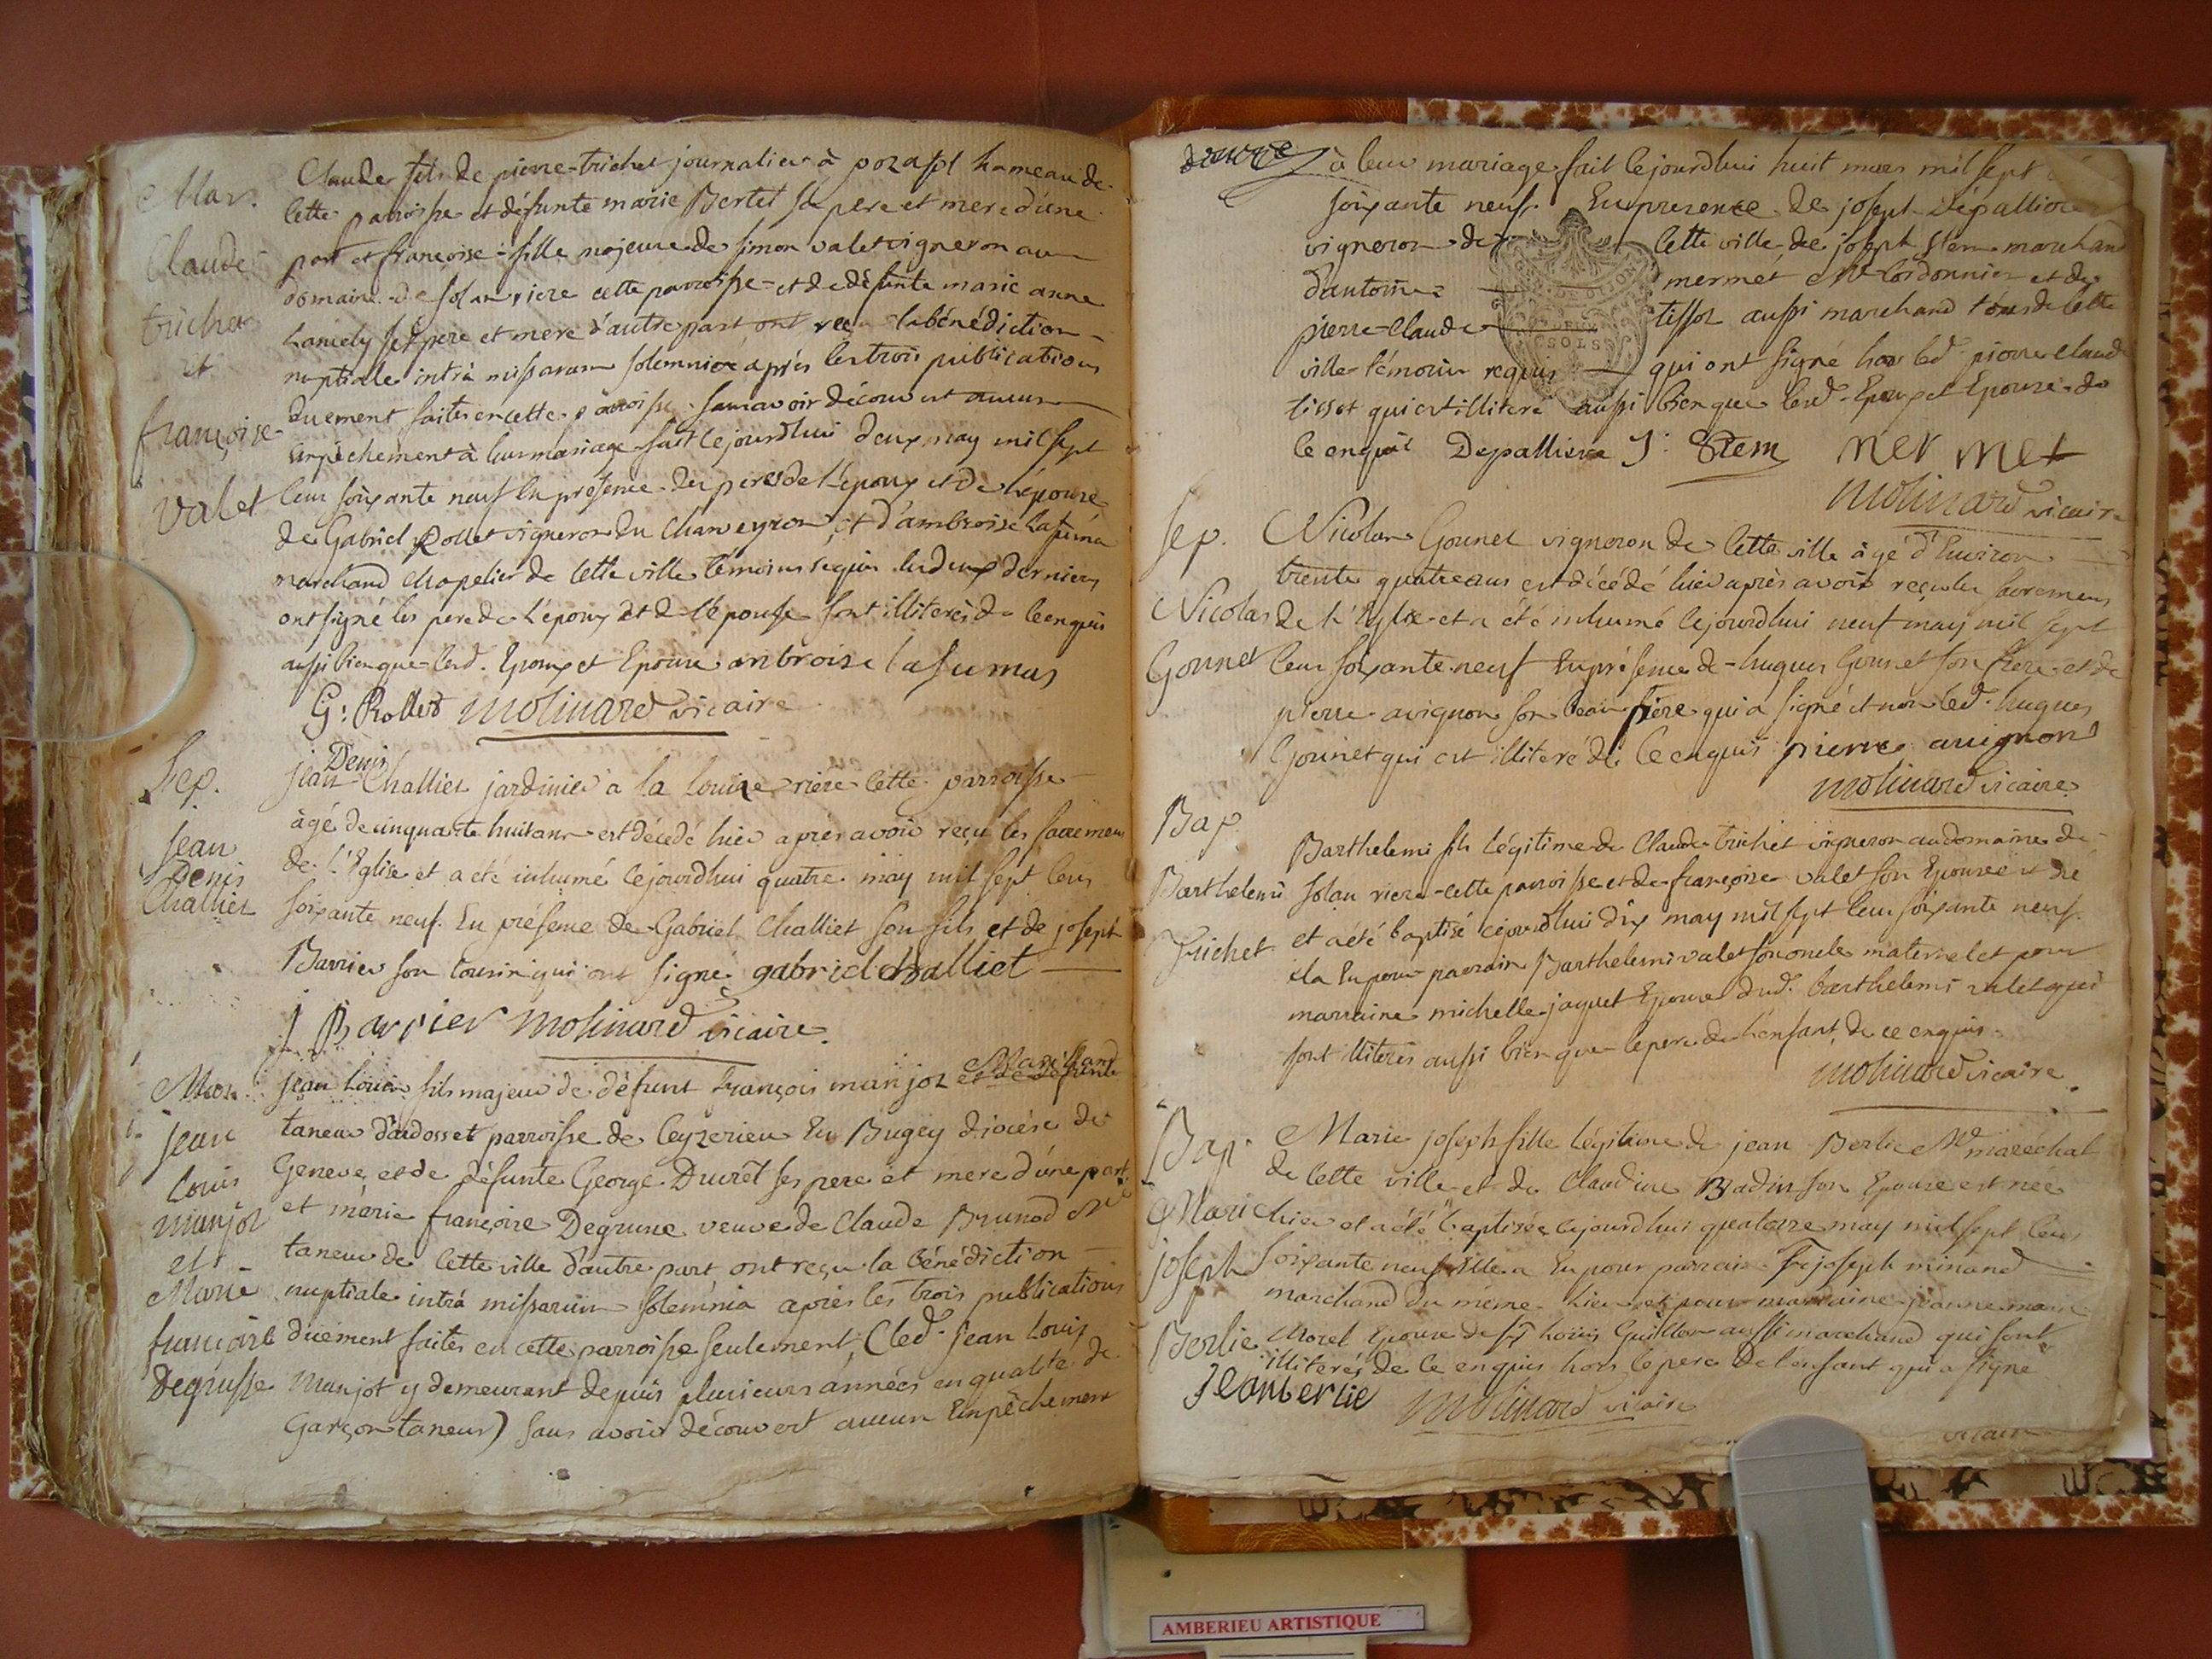 Mar.
Claude
trichet
et
françoise
valet
Claude fils de pierre trichet journalier à hameau de
cette parroisse et défunte marie Bertet ses pere et mere d'une
part et françoise fille majeure de simon valet vigneron au
domaine de solan riere cette parroisse et de défunte marie anne
ses pere et mere d'autre part ont reçu la bénédiction
nuptiale intrà missarum solemnia après les trois publications
duement faites en cette parroisse sans avoir découvert aucun
empêchement à leur mariage fait cejourdhui deux may mil sept
cent soixante neuf En présence des peres de l'époux et de l'épouse
de Gabriel Rollet vigneron du Charveyron, et d'ambroise lafuma
marchand chapelier de cette ville témoins requis les deux derniers
ont signé les peres de l'époux et de l'épouse sont illiterés de ce enquis
aussi bien que lesd. Epoux et Epouse ambroise lafumas
G: Rollet molinard vicaire
Sep.
Jean
Denis
Challiet
Denis
Jean Challiet jardinier a la riere cette parroisse
âgé de cinquante huit ans est décedé hier après avoir reçu les sacremens
de l'Eglise et a été inhumé cejourdhui quatre may mil sept cens
soixante neuf. En présence de Gabriel Challiet son fils et de joseph
Barrier son cousin qui ont signé gabriel challiet
J Barrier molinard vicaire.
Mar.
jean
louis
manjot
et
Marie
françoise
Degrusse
jean louis fils majeur de défunt françois manjot et de défunte
taneur d'ardosset parroisse de Ceyzerieu En Bugey diocése de
Geneve et de défunte George Ducrêt ses pere et mere d'une part
et marie françoise veuve de Claude Brunod Me
taneur de cette ville d'autre part ont reçu la bénédiction
nuptiale intrà missarum solemnia après les trois publications
duement faites en cette parroisse seulement, (led. jean louis
manjot y demeurant depuis plusieurs années en qualité de
Garçon taneur) sans avoir découvert aucun Empêchement
à leur mariage fait cejourdhui huit mil sept
soixante neuf. En presence de joseph Dépalliere
vigneron de cette ville, de joseph Stem marchand
d'antoine mermet Me Cordonnier et de
pierre claude tissot aussi marchand tous de cette
ville témoins requis qui ont signé hors led. pierre claude
tissot qui est illiteré aussi bien que lesd. Epoux et Epouse de
ce enquis Depalliere J: Stem mermet
molinard vicaire
Sep.
Nicolas
Gounet
Nicolas Gounet vigneron de cette ville âgé d'Environ
trente quatre ans est décédé hier après avoir reçu les sacremens
de l'Eglise et a été inhumé cejourdhui neuf may mil sept
cens soixante neuf En présence de hugues Gounet son frere et de
pierre avignon son beau frere qui a signé et non led. hugues
Gounet qui est illiteré de ce enquis pierre avignon
molinard vicaire
Bap.
Barthelemi
Trichet
Barthelemi fils légitime de Claude trichet vigneron au domaine de
solan riere cette parroisse et de françoise valet son Epouse est né
et a été baptisé cejourdhui dix may mil sept cens soixante neuf.
Il a Eu pour parrain Barthelemi valet son oncle maternel et pour
marraine michelle jaquet Epouse dud. barthelemi valet qui
sont illiterés aussi bien que le pere de l'enfant de ce enquis.
molinard vicaire
Bap.
Marie
joseph
Berlie
Marie joseph fille légitime de jean Berlie Me maréchal
de cette ville et de Claudine Badin son Epouse est née
hier et a été baptisée cejourdhui quatorze may mil sept cens
soixante neuf. Elle a Eu pour parrain Sr joseph minand
marchand du même lieu et pour marraine jeanne marie
Morel Epouse de Sr louis Guillon aussi marchand qui sont
illiterés de ce enquis hors le pere de l'enfant qui a signé
Jean berlie molinard vicaire
vicaire
AMBERIEU ARTISTIQUE